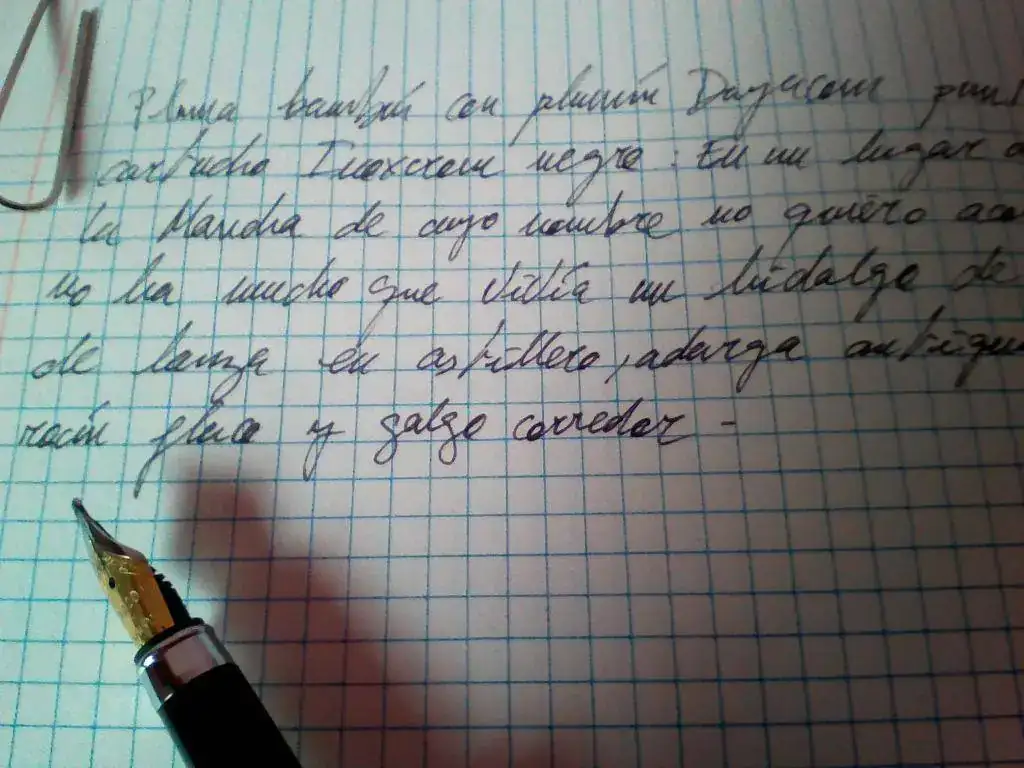 Pluma bambú con plumín Dayacom pun
cartucho Inoxcrom negro: En un lugar d
la Mancha de cuyo nombre no quiero aco
no ha mucho que vivía un hidalgo de
de lanza en astillero, adarga antigu
rocín flaco y galgo corredor -